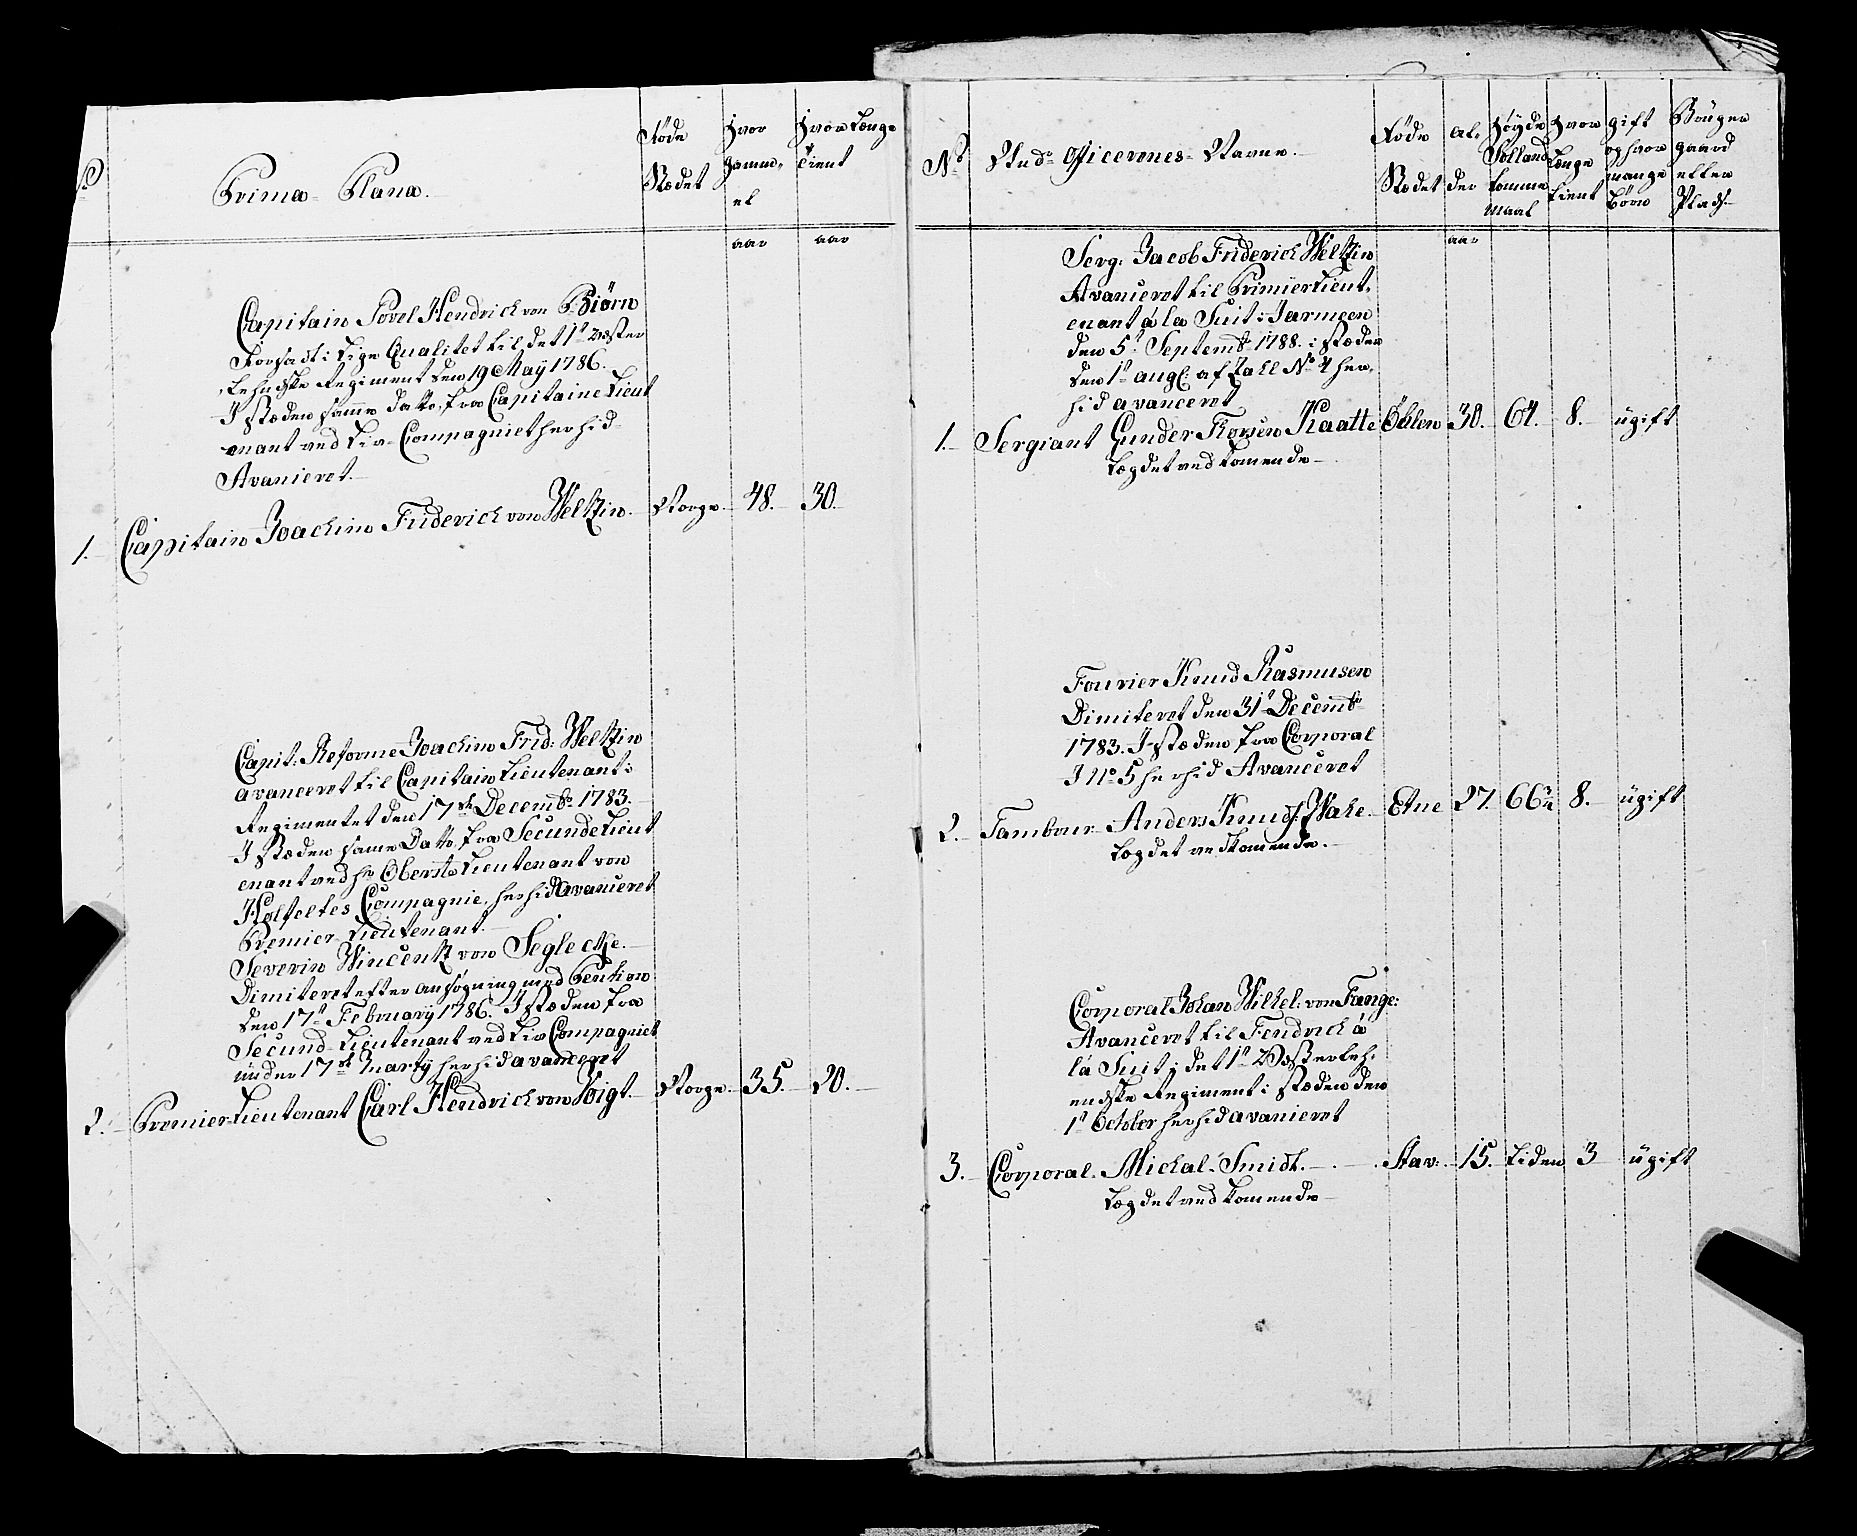 No
Prima Plana.
Føde
Stædet
Hvor
gamm-
el
Hvor Længe
tient
aar
aar
Capitain Povel Hendrich von Biörn
Forsadt i Lige Qualitet til det 1te Vester
Lehnske Regiment den 19 May 1786.
I stæden samme Datto, fra Capitaine Lieut
enant ved Liv- Compagniet herhid
Avanieret.
1. Capitain Joachim Friderich von Weltzin. Norge. 48. 30.
Capit: Reforme Joachim Frid: Weltzin
avanceret til Capitain Lieutenant i
Regimentet den 17de Decembr 1783.
I stæden same Datto, fra Secunde Lieut
enant ved hr Oberste Lieutenant von
Compagnie, herhid Avanceret
Premier Lieutenant.
Severin Wincentz von Segleche.
Dimiteret efter ansøgning med Pention
den 17de February 1786. I stæden fra
Secund- Lieutenant ved Liv Compagniet
under 17de Marty herhid avanceret
2. Premier-Lieutenant Carl Hendrich von Voigt. Norge. 35. 20.
No
Und: Officerenes Navne.
Føde
Stædet
al-
der
Høyde
Solland
tomme
Maal
Hvor
Længe
tient
gift
og hvor
mange
børn
Bruger
gaard
eller
Plads
aar
Serg: Jacob Friderich Weltzin
Avanceret til Primier Lieut,
enant á la Suit i Jarmeen
den 5te Septembr 1788. i stæden
den 1te aug: af Tall No 4 her,
hid avanceret
1. Sergiant Gunder Torsen Kaatte Øhlen 30. 64. 8. ügift
Lægdet vedkomende
Fourier Knud Rasmusen
Dimiteret den 31te Decembr
1783. I stæden fra Corporal
I No 5 herhid Avanceret
2. Tambour Anders Knuds: Wake. Etne 27. 66¾ 8. ügift
Lægdet vedkomende.
Corporal Johan Wilhel: von Tange:
Avanceret til Fendrich á
lá Suit i det 1te Vesterleh:
endske Regiment i stæden den
1te October herhid avanieret
3. Corporal Michal Smidt. Stav: 15. Liden 3 ügift
Lægdet vedkomende